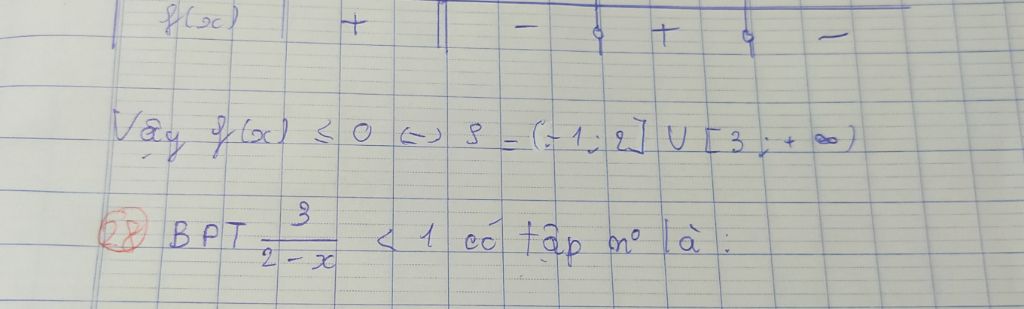 f(x) + || - + -
Vậy f(x) ≤ 0 <-> S = (-1; 2] ∪ [3; +∞)
28 BPT 3/(2-x) < 1 có tập nº là: